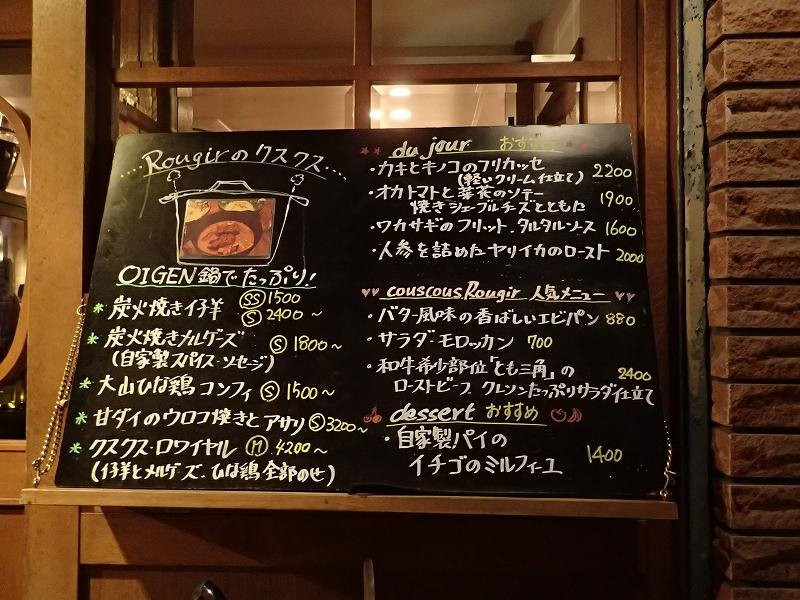 Rougirのクスクス
OIGEN鍋でたっぷり!
* 炭火焼き仔羊 SS 1500
S 2400~
* 炭火焼きメルゲーズ S 1800~
(自家製スパイス・ソーセージ)
* 大山ひな鶏コンフィ S 1500~
* 甘ダイのウロコ焼きとアサリ S 3200~
* クスクス・ロワイヤル M 4200~
(仔羊とメルゲーズ・ひな鶏 全部のせ)
du jour
・カキとキノコのフリカッセ 2200
(軽いクリーム仕立て)
・オカトマトと菜花のソテー 1900
焼きシェーブルチーズとともに
・ワカサギのフリット、タルタルソース 1600
・人参を詰めたヤリイカのロースト 2000
couscous Rougir 人気メニュー
・バター風味の香ばしいエビパン 880
・サラダ・モロッカン 700
・和牛希少部位「とも三角」の 2400
ローストビーフ クレソンたっぷりサラダ仕立て
dessert おすすめ
・自家製パイの
イチゴのミルフィーユ 1400